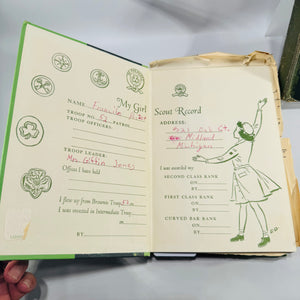 My Girl
NAME
TROOP NO. 52 PATROL
TROOP OFFICERS:
TROOP LEADER:
Mrs Jones
Offices I have held
I flew up from Brownie Troop
I was invested in Intermediate Troop
on
BY:
Scout Record
ADDRESS:
St.
Midland
Michigan
I was awarded my
SECOND CLASS RANK
ON
BY
FIRST CLASS RANK
ON
BY
CURVED BAR RANK
ON
BY